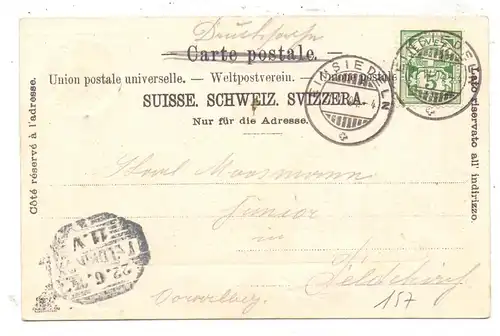 Drucksache
Carte postale.
Union postale universelle. — Weltpostverein. — Unione postale
SUISSE. SCHWEIZ. SVIZZERA.
Nur für die Adresse.
Côté réservé à l'adresse.
Lato riservato all' indirizzo.
EINSIEDELN
HELVETIA
5
Karl Moosmann
Junior
in
Feldkirch
Vorarlberg
157
22.6.
11.V